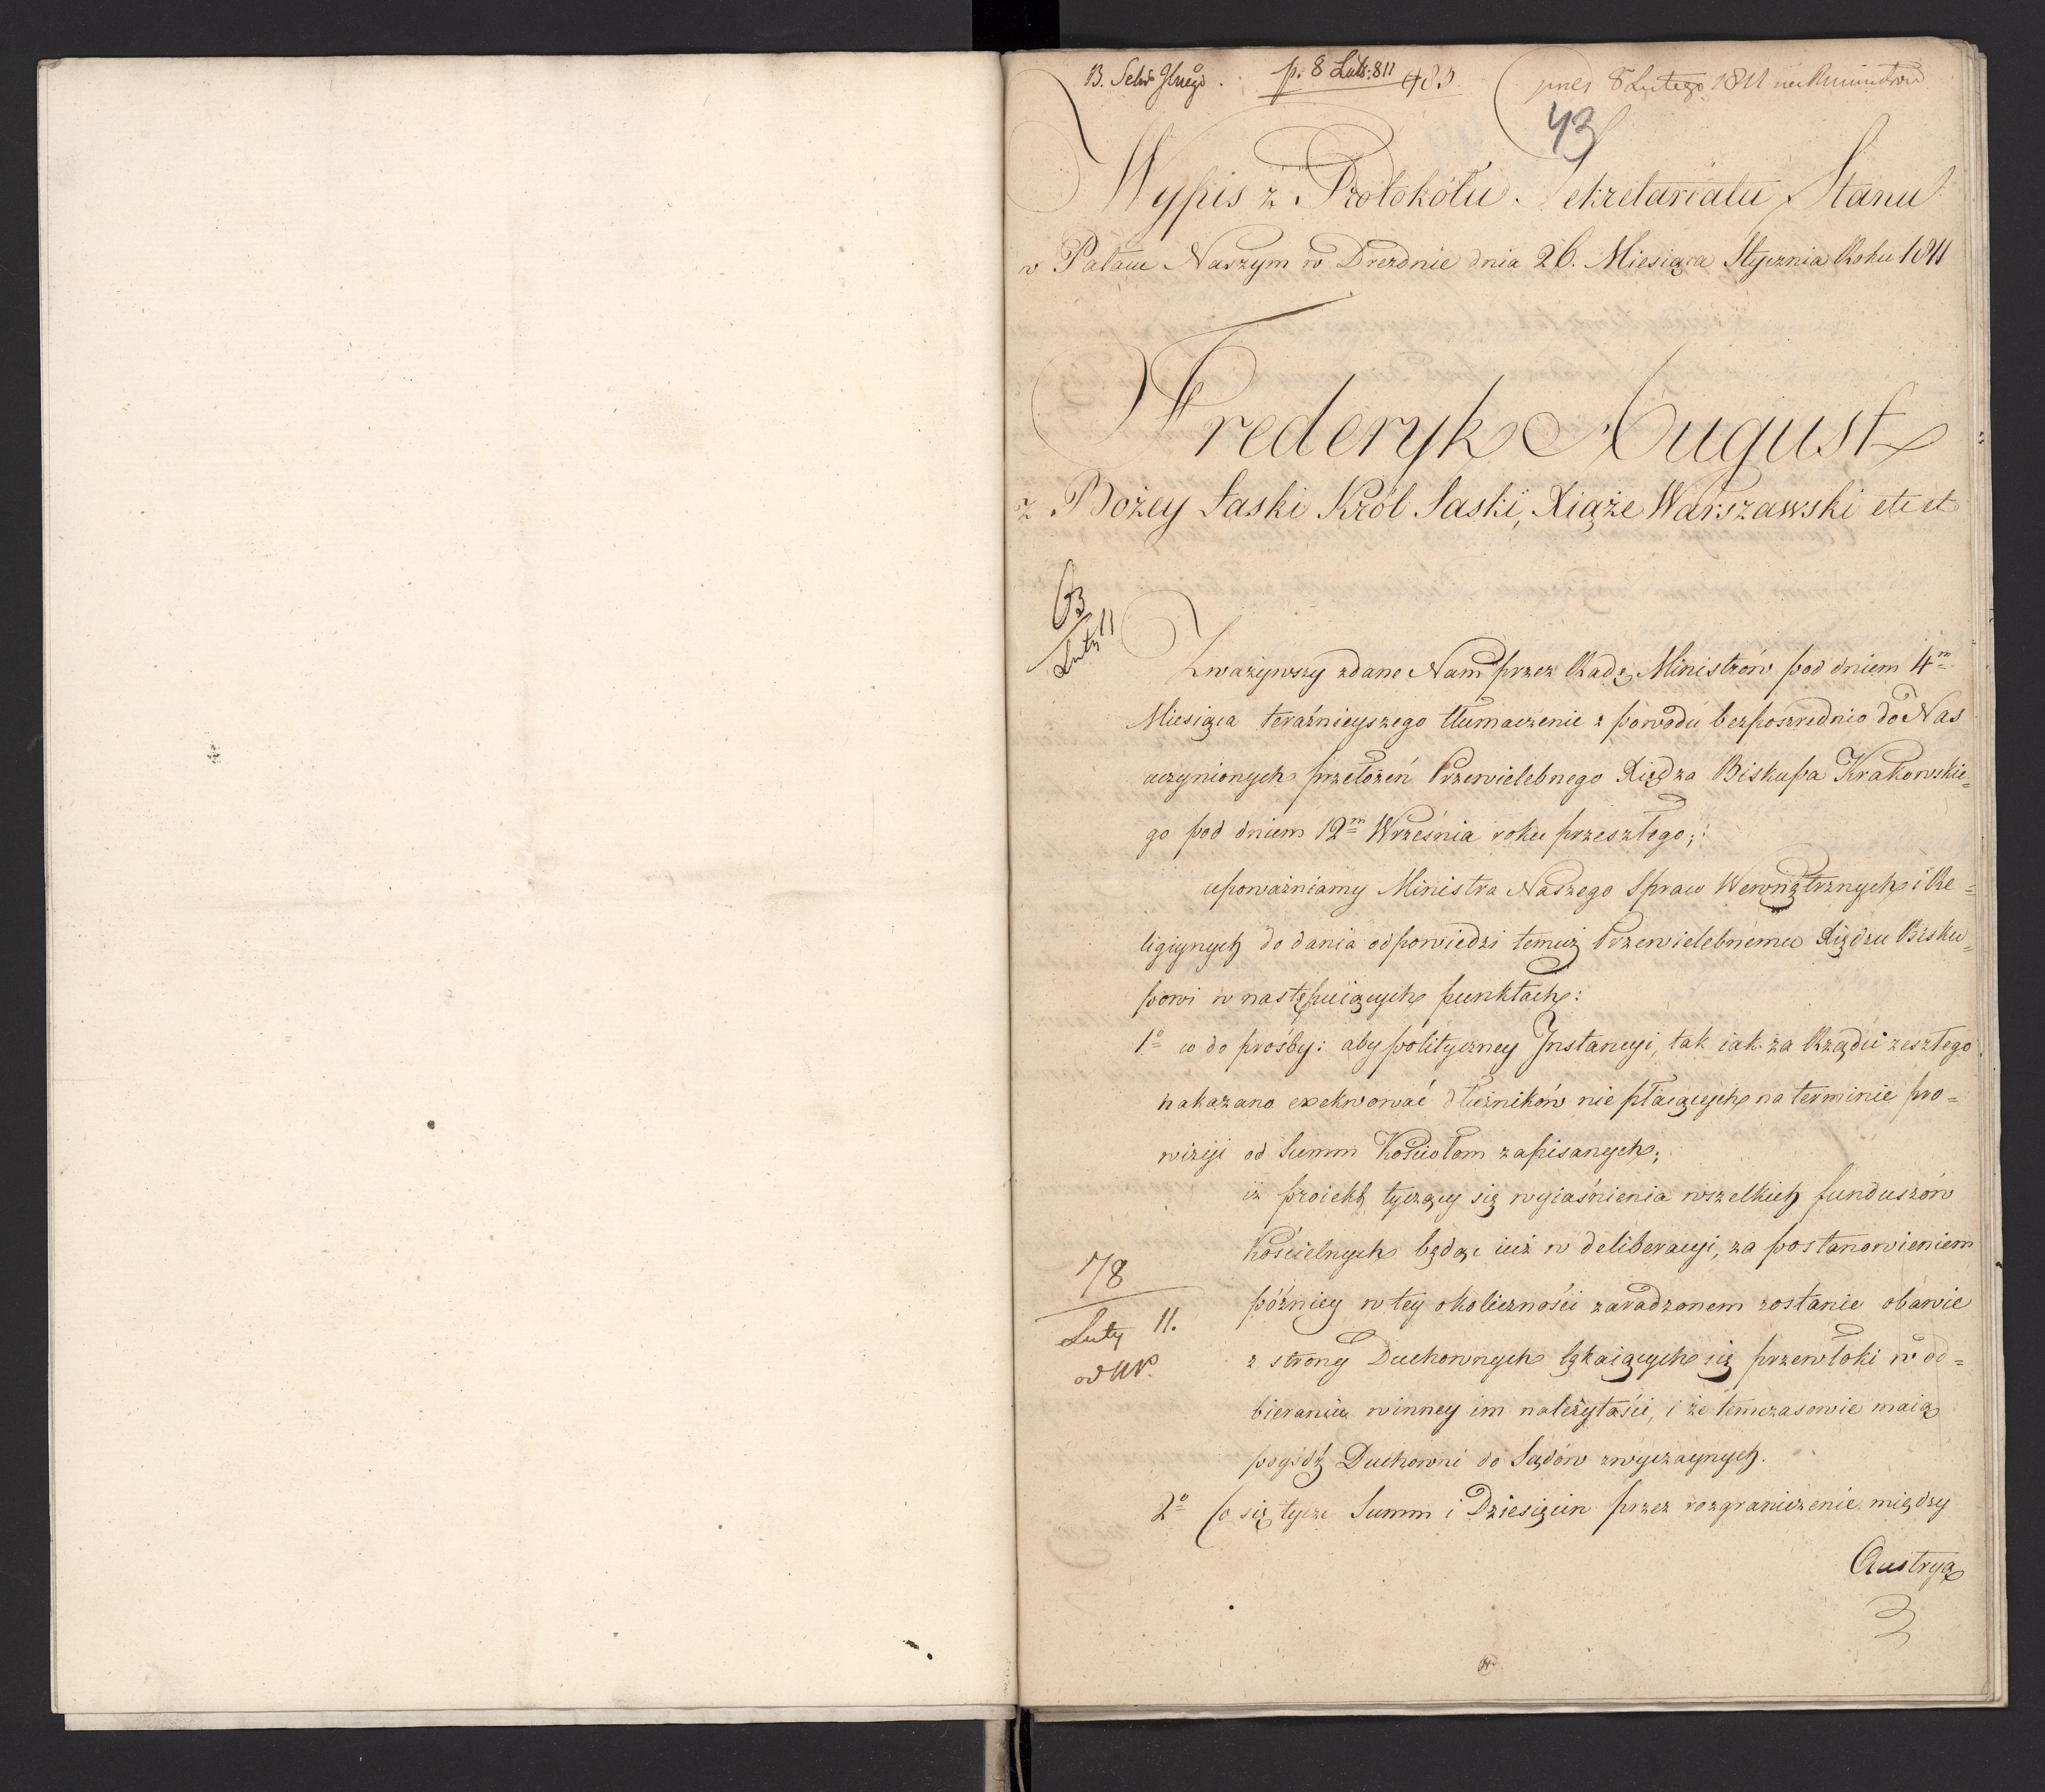 p. 8 Lut: 811
43
8 Lutego 1811
Wypis z Protokółu Sekretariatu Stanu
w Pałacu Naszym w Dreznie dnia 26. Miesiąca Stycznia Roku 1811
Frederyk August
z Bożey Łaski Król Saski, Xiąże Warszawski etc et
63
Luty 11
Zważywszy zdane Nam przez Radę Ministrów pod dniem 4m
Miesiąca teraźnieyszego tłumaczenie z powodu bezpośrednio do Nas
uczynionych przełożeń Przewielebnego Xiędza Biskupa Krakowskie=
go pod dniem 12m Września roku przeszłego;
upoważniamy Ministra Naszego Spraw Wewnętrznych i Re=
ligiynych do dania odpowiedzi temuż Przewielebnemu Xiędzu Bisku=
powi w następuiących punktach:
1o co do prośby: aby polityczney Instancyi, tak iak za Rządu zeszłego
nakazano exekwować dłużników nie płacących na terminie pro=
wizyi od Summ Kościołom zapisanych;
iż proiekt tyczący się wyiaśnienia wszelkich funduszów
Kościelnych będąc iuż w deliberacyi, za postanowieniem
późniey w tey okoliczności zaradzonem zostanie obawie
z strony Duchownych lękaiących się przewłoki w od=
bieraniu winney im należytości, i że tymczasowie maią
pogódź Duchowni do Sądów zwyczaynych.
78
Luty 11.
2o Co się tycze Summ i Dziesięcin przez rozgraniczenie między
Austryą